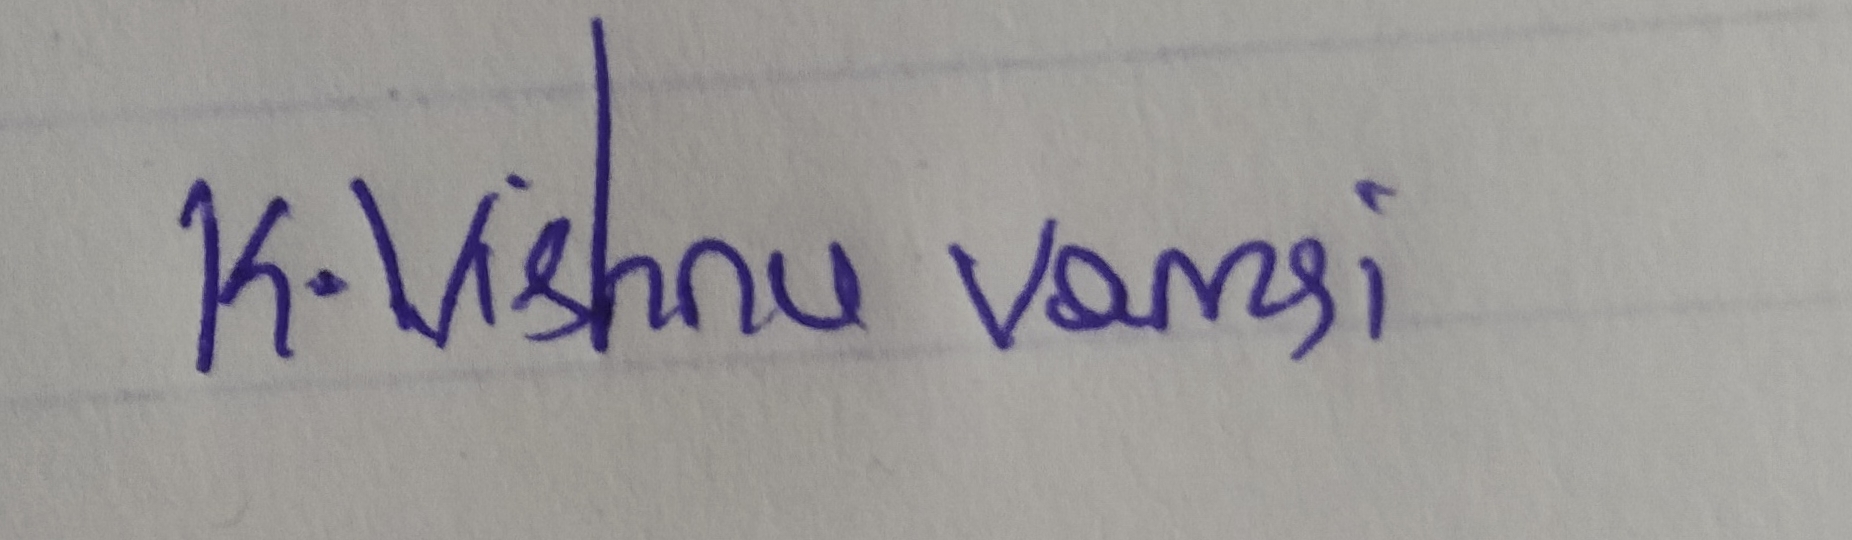 K. Vishnu vamsi